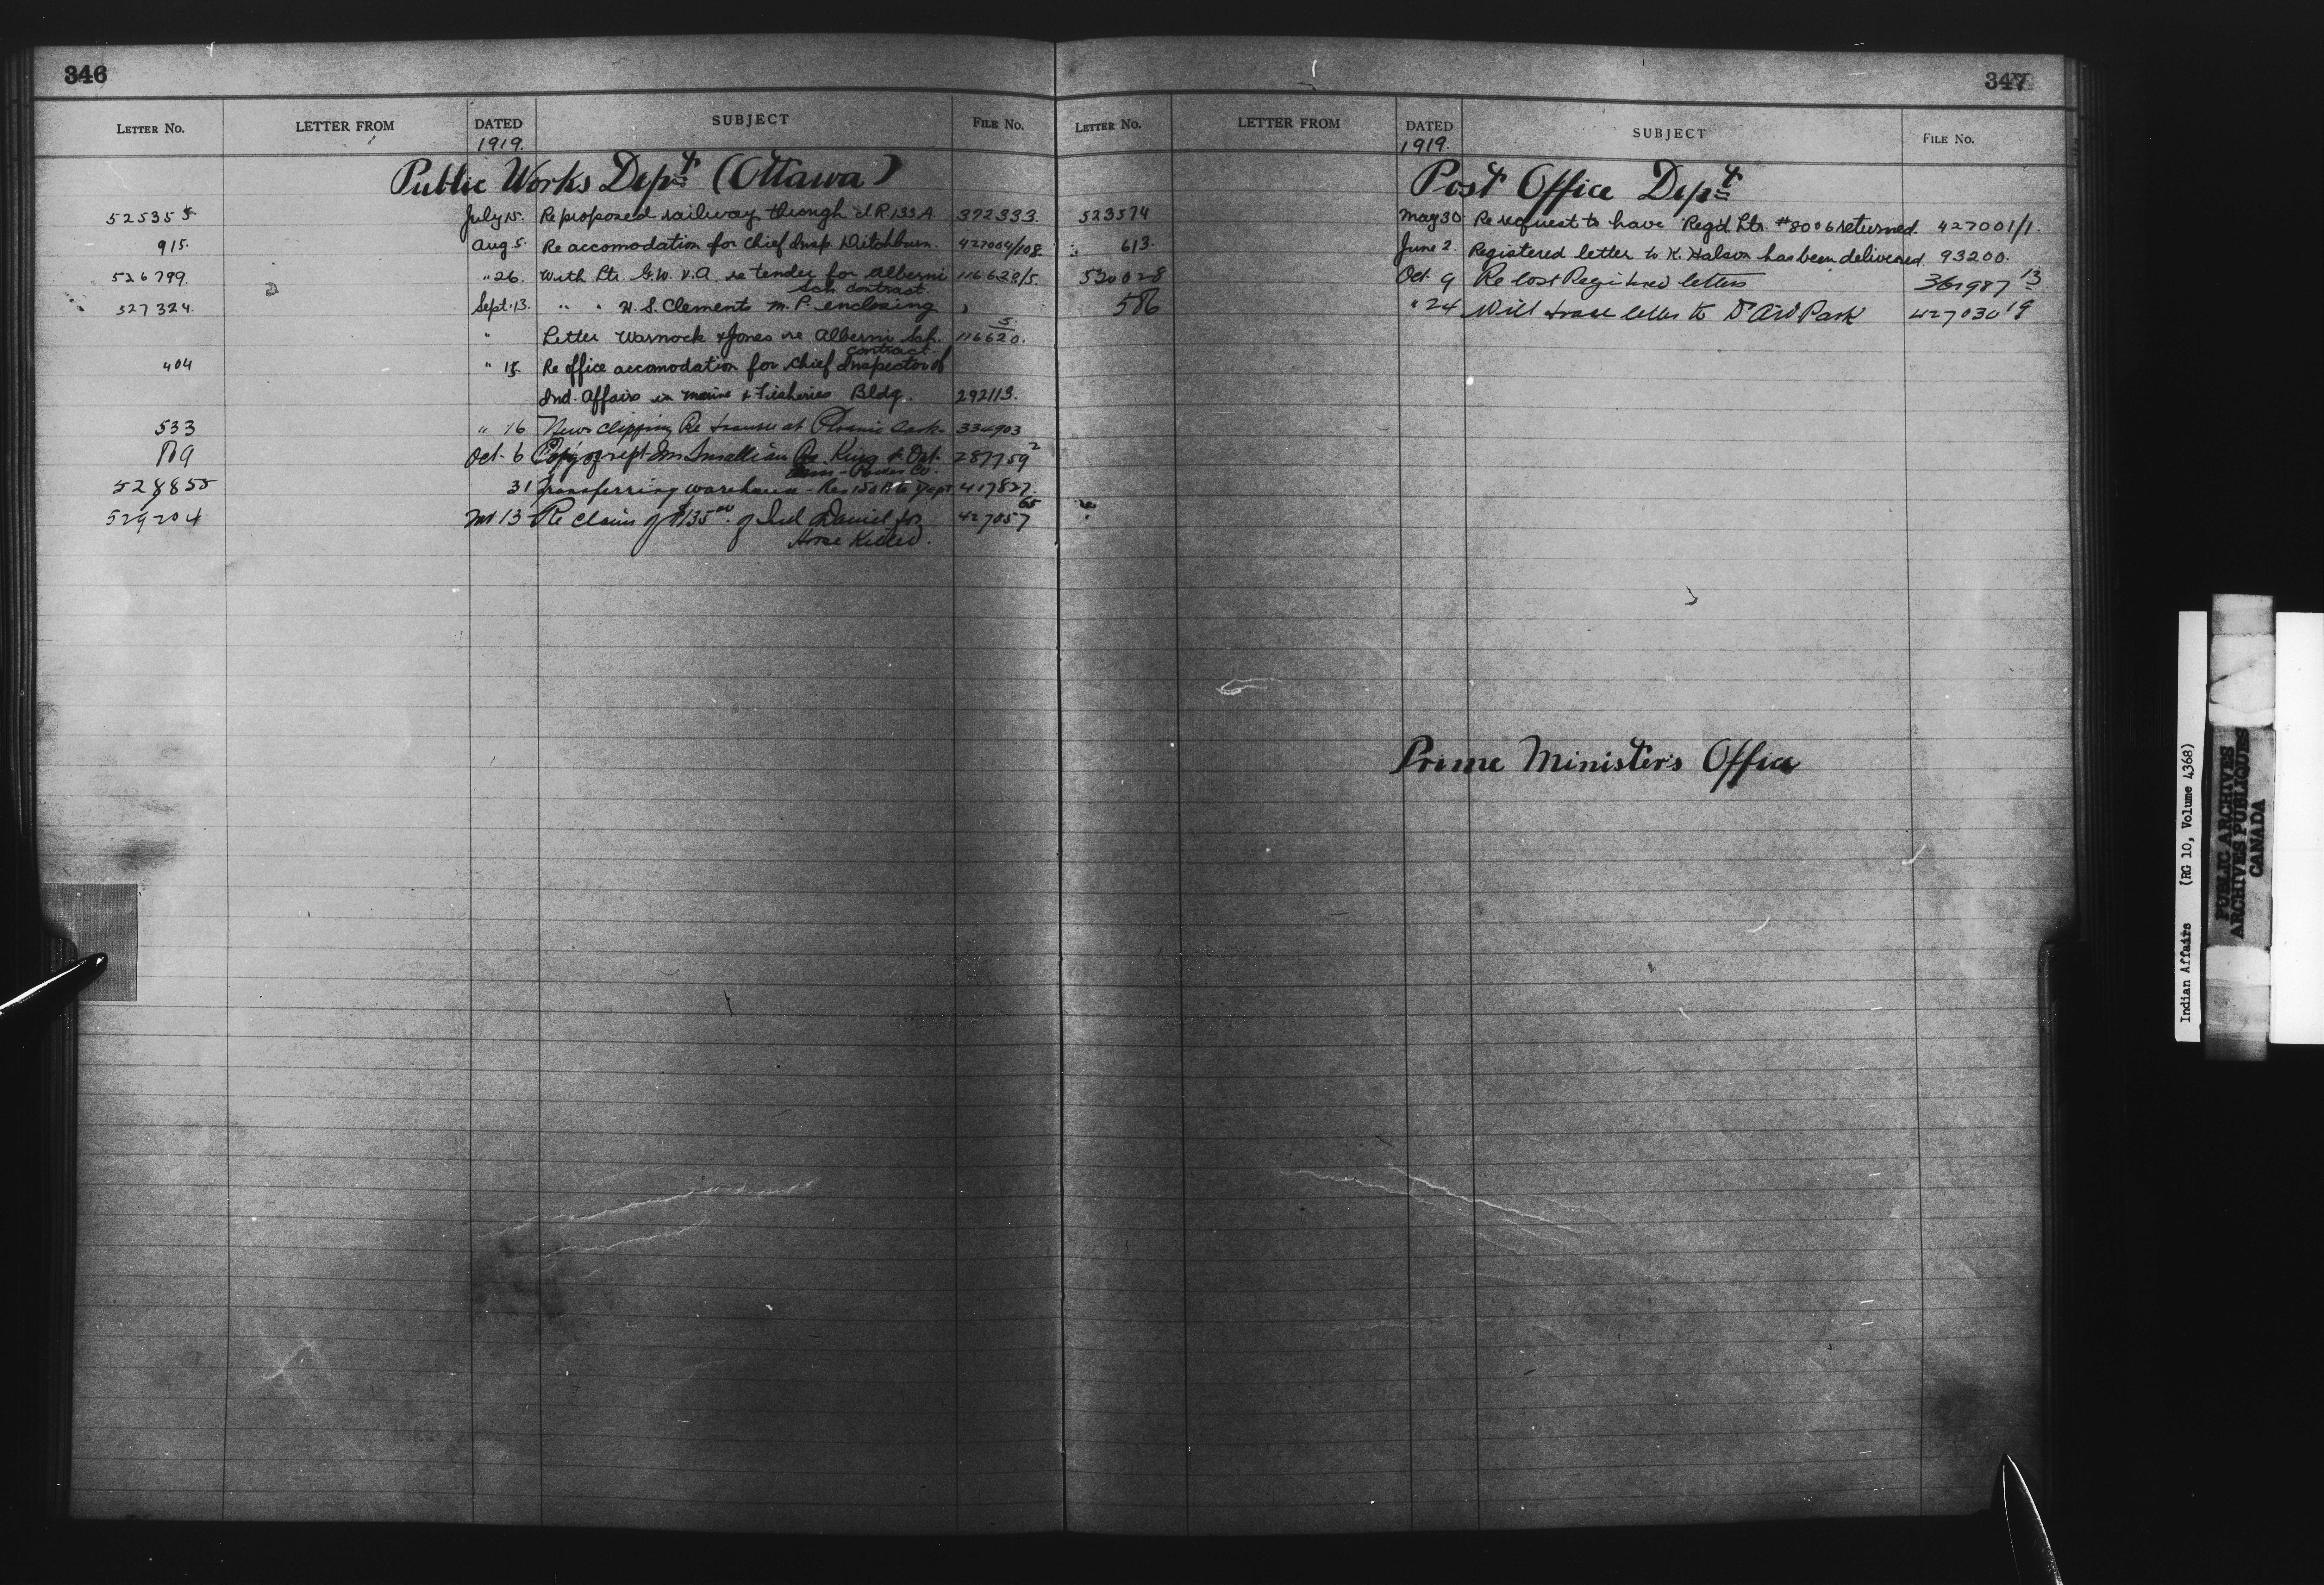 346
LETTER No. LETTER FROM DATED SUBJECT FILE No.
1919.
Public Works Dept (Ottawa)
525355 July 15. Re proposed railway through I.R. 133A. 372333.
915. Aug 5. Re accomodation for Chief Insp. Ditchburn. 427004/108.
526799. " 26. With Ltr. G.W.V.A. re tender for Alberni 116620/5.
Sch. contract.
527324. Sept. 13. " " H.S. Clements M.P. enclosing
" Letter Warnock & Jones re Alberni Sch. 116620. 5
contract.
404 " 15. Re office accomodation for Chief Inspector of
Ind. Affairs in Marine & Fisheries Bldg. 292113.
533 " 16 News clipping Re 334903
Oct. 6 Copy of Re King & Ont. 287759 2
Power Co.
528855 31 Transferring warehouse - Res 150 to Dept 417827
529204 13 Re claim of $135.00 of Ind Daniel for 427057 65
Horse Killed.
347
LETTER No. LETTER FROM DATED SUBJECT FILE No.
1919.
Post Office Dept
523574 May 30 Re request to have Reg'd Ltr. #8006 returned. 427001/1.
613. June 2. Registered letter to K. has been delivered. 93200.
530028 Oct. 9 Re lost Registered letters 361987 13
586 " 24 Will trace letter to Dr Park 427030 19
Prime Minister's Office
Indian Affairs (RG 10, Volume 4368)
PUBLIC ARCHIVES
ARCHIVES PUBLIQUES
CANADA